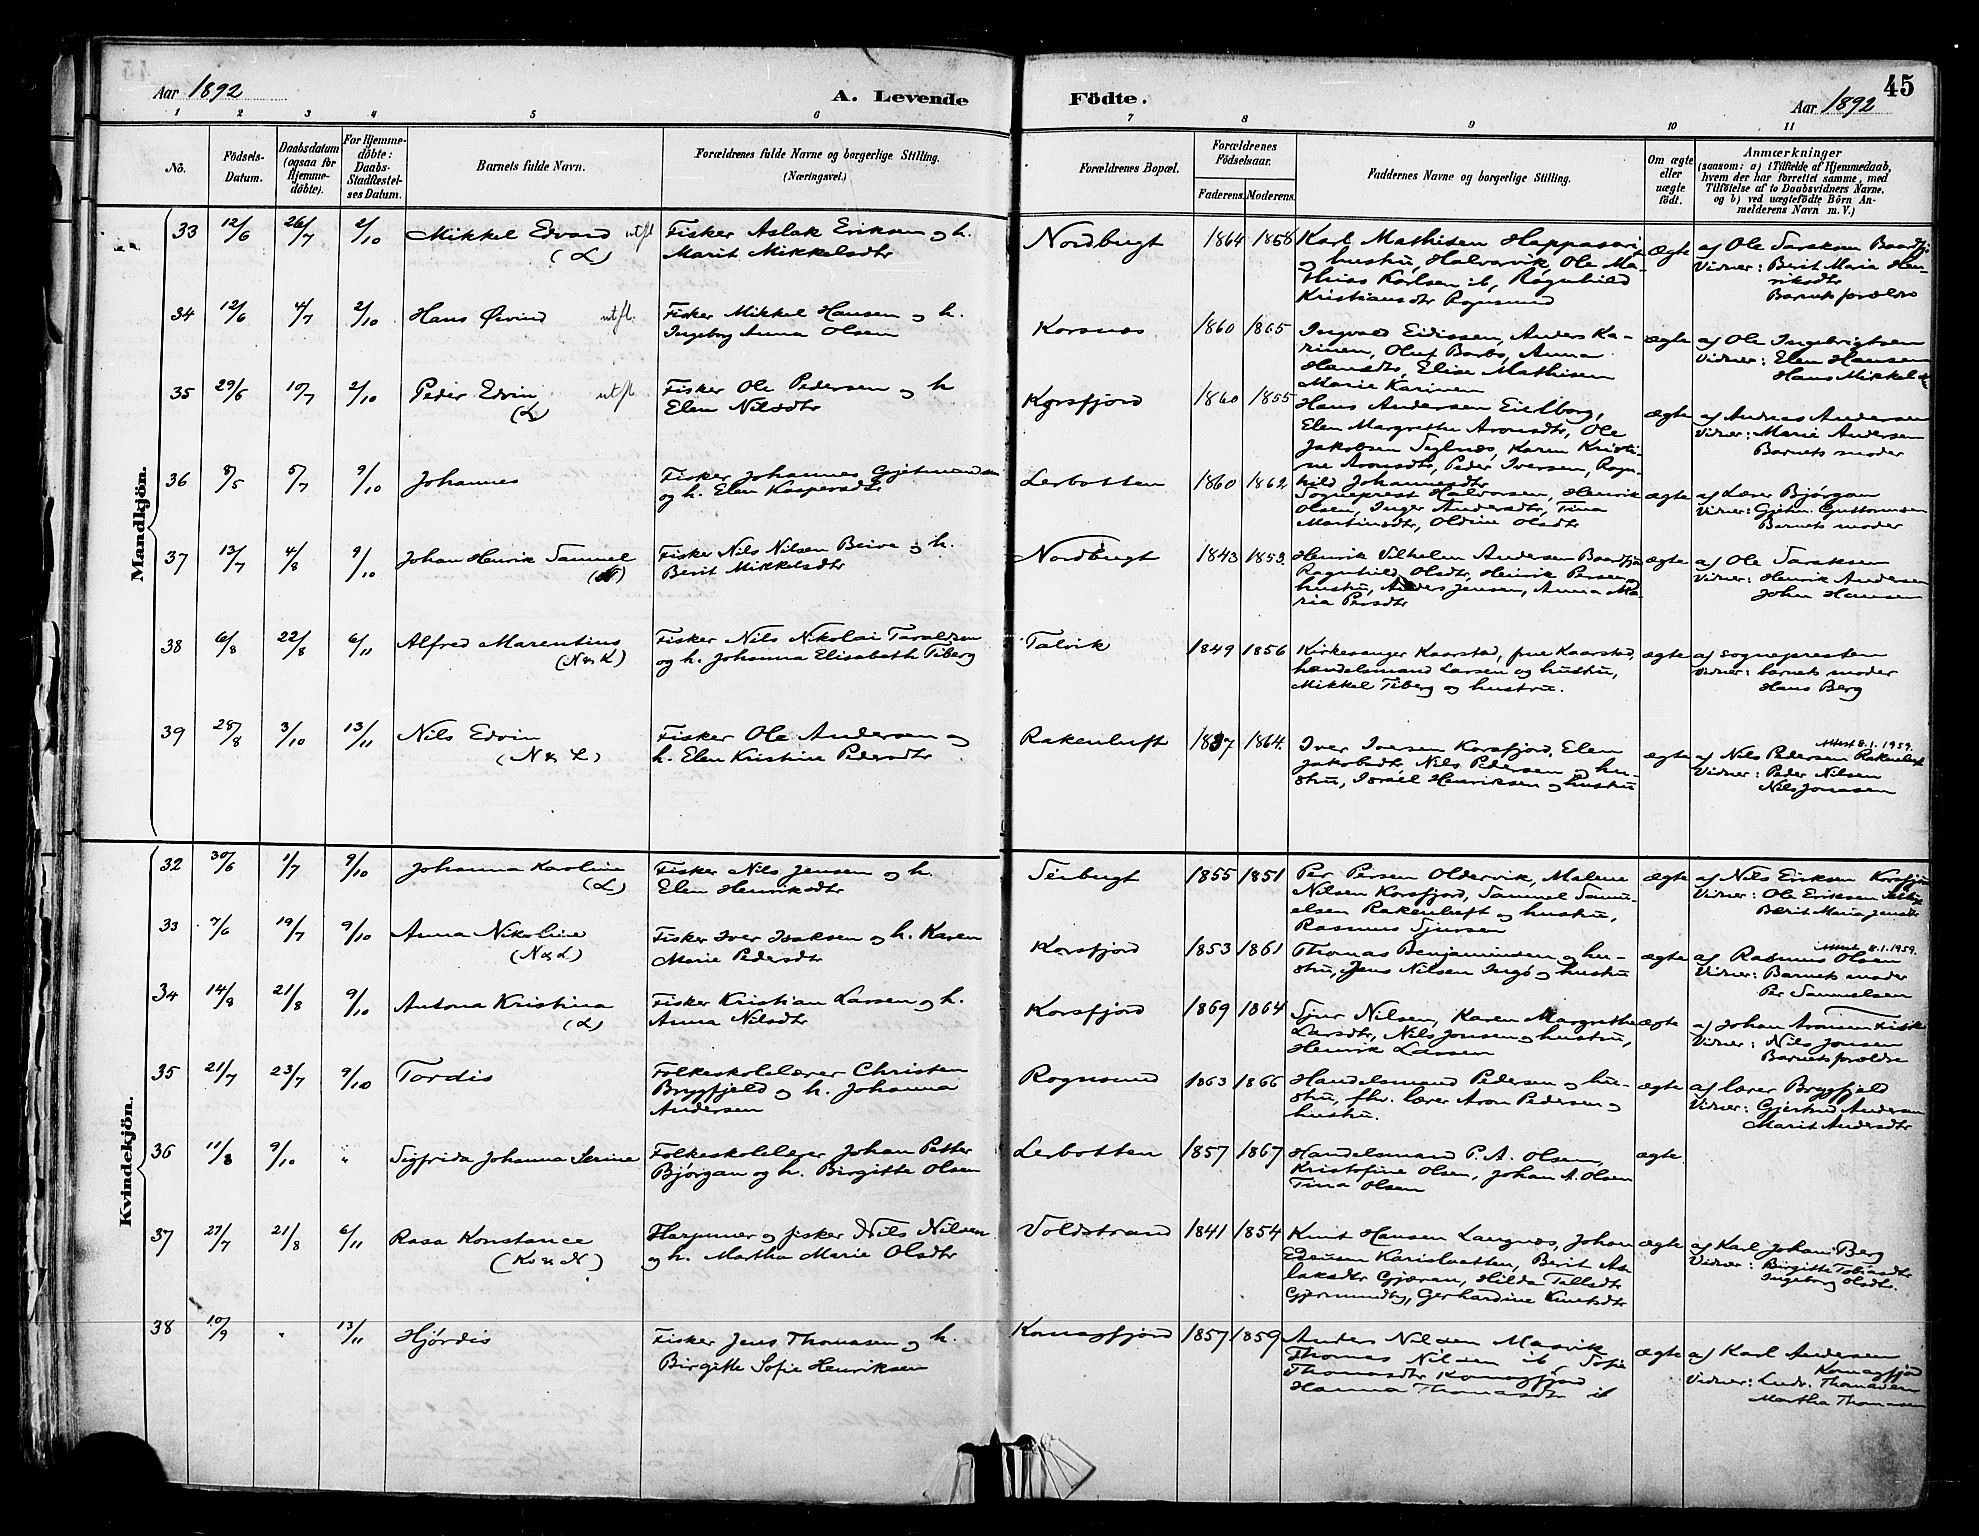 Aar 1892
A. Levende
Födte.
Aar 1892
45
1 2 3 4 5 6 7 8 9 10 11
No.
Födsels-
Datum.
Daabsdatum
(ogsaa for
Hjemme-
döbte).
For Hjemme-
döbte:
Daabs-
Stadfæstel-
ses Datum.
Barnets fulde Navn.
Forældrenes fulde Navne og borgerlige Stilling.
(Næringsvei.)
Forældrenes Bopæl.
Forældrenes
Födselsaar.
Faderens. Moderens.
Faddernes Navne og borgerlige Stilling.
Om ægte
eller
uægte
födt.
Anmærkninger
(saasom: a) i Tilfælde af Hjemmedaab,
hvem der har forrettet samme, med
Tilföielse af to Daabsvidners Navne,
og b) ved uægtefödte Börn An-
melderens Navn m. V.)
Mandkjön.
33 12/6 26/7 2/10 Mikkel Edvard utfl.
(L)
Fisker Aslak Eriksen og h.
Marit Mikkelsdtr
Nordbugt 1864 1858
Karl Mathisen Happasari
og hustru, Halvarvik, Ole Ma-
thias Karlsen ib, Ragnhild
Kristiansdtr Rognsund
ægte
af Ole Isaksen Baardfj.
Vidner: Berit Maria Hen-
riksdtr
Barnets forældre
34 12/6 4/7 2/10 Hans Øivind utfl.
Fisker Mikkel Hansen og h.
Ingeborg Anna Olsen
Korsnæs 1860 1865
Ingvald Eidissen, Anders Ka-
rinen, Oluf Barbo, Anna
Hansdtr, Elise Mathisen
Marie Karinen
ægte
af Ole Ingebrigtsen
Vidner: Elen Hansen
Hans Mikkelsen
35 29/6 10/7 2/10 Peder Edvin utfl.
(L)
Fisker Ole Pedersen og h
Elen Nilsdtr
Korsfjord 1860 1855
Hans Andersen Eielborg,
Elen Margrethe Aronsdtr, Ole
Jakobsen Seglnæs, Karen Kristi-
ne Aronsdtr, Peder Iversen, Ragn-
hild Johannesdtr
ægte
af Andreas Andersen
Vidner: Marie Andersen
Barnets moder
36 8/5 5/7 9/10 Johannes
Fisker Johannes Gjetmundsen
og h. Elen Kaspersdtr
Lerbotten 1860 1862
Sogneprest Halvorsen, Henrik
Olsen, Inger Andersdtr, Tina
Martinsdtr, Oldine Olsdtr
ægte
af Lærer Bjørgan
Vidner: Gjetm. Guttormsen
Barnets moder
37 13/7 4/8 9/10 Johan Henrik Samuel
(N)
Fisker Nils Nilsen Beive og h.
Berit Mikkelsdtr
Nordbugt 1843 1853.
Henrik Vilhelm Andersen Baardfj.
Ragnhild Olsdtr, Henrik Persen og
hustru, Anders Jensen, Anna Ma-
ria Persdtr
ægte
af Ole Isaksen
Vidner: Henrik Andersen
John Hansen
38 6/8 22/8 6/11 Alfred Marentius
(N & K)
Fisker Nils Nikolai Taraldsen
og h. Johanna Elisabeth Tiberg
Talvik 1849 1856
Kirkesanger Kaarstad, frue Kaarstad,
handelsmand Larsen og hustru,
Mikkel Tiberg og hustru.
ægte
af sognepresten
Vidner: barnets moder
Hans Berg
39 28/8 3/10 13/11 Nils Edvin
(N & L)
Fisker Ole Andersen og
h. Elen Kristine Pedersdtr
Rakenluft 1837 1864.
Iver Iversen Korsfjord, Elen
Jakobsdtr Nils Pedersen og hu-
stru, Israel Henriksen og hustru
ægte
Attest 8.1.1959.
af Nils Pedersen Rakenluft
Vidner: Peder Nilsen
Nils Jonasen
Kvindekjön.
32 30/6 1/7 9/10 Johanna Karoline
(L)
Fisker Nils Jensen og h.
Elen Henriksdtr
1855 1851
Per Persen Oldervik, Malene
Nilsen Korsfjord, Samuel Samu-
elsen Rakenluft og hustru,
Rasmus Sjursen
ægte
af Nils Eriksen Korsfjord
Vidner: Ole Eriksen
Berit Maria Jensdtr
33 7/6 19/7 9/10 Anna Nikoline
(N & L)
Fisker Iver Isaksen og h. Karen
Marie Pedersdtr
Korsfjord 1853 1861
Thomas Benjaminsen og hu-
stru, Jens Nilsen Ingø og hustru
ægte
Attest 8.1.1959.
af Rasmus Olsen
Vidner: Barnets moder
Per Samuelsen
34 14/8 21/8 9/10 Antona Kristina
(L)
Fisker Kristian Larsen og h.
Anna Nilsdtr
Korsfjord 1869 1864
Sjur Nilsen, Karen Margrethe
Larsdtr, Nils Jonsen og hustru,
Henrik Larsen
ægte
af Johan Aronsen
Vidner: Nils Jonsen
Barnets forældre
35 21/7 23/7 9/10 Tordis
Folkeskolelærer Christen
Bryggfjeld og h. Johanna
Andersen
Rognsund 1863 1866
Handelsmand Pedersen og hu-
stru, fhv. lærer Aron Pedersen og
hustru.
ægte
af lærer Bryggfjeld
Vidner: Gjertrud Andersen
Marit Andersdtr
36 11/8 9/10 " Sigfrida Johanna Serine
Folkeskolelærer Johan Petter
Bjørgan og h. Birgitte Olsen
Lerbotten 1857 1867
Handelsmand P. A. Olsen,
Kristofine Olsen, Johan A. Olsen
Tina Olsen
ægte
37 27/7 21/8 6/11 Rasa Konstance
(Kv & N)
Harpuner og fisker Nils Nilsen
og h. Martha Marie Olsdtr
Voldstrand 1841 1854
Knut Hansen Langnæs, Johan
Edensen Karislvatten, Berit As-
laksdtr Gjæran, Hilda Tallsdtr
Gjermundby, Gerhardine Knutsdtr
ægte
af Karl Johan Berg
Vidner: Birgitte Tobiasdtr
Ingeborg Olsdtr.
38 10/9 " 13/11 Hjørdis
Fisker Jens Thomasen og h.
Birgitte Sofie Henriksen
Komagfjord 1857 1859
Anders Nilsen Masvik
Thomas Nilsen ib, Sofie
Thomasdtr Komagfjord
Hanna Thomasdtr ib
ægte
af Karl Andersen
Komagfjord
Vidner: Ludv. Thomasen
Martha Thomasen